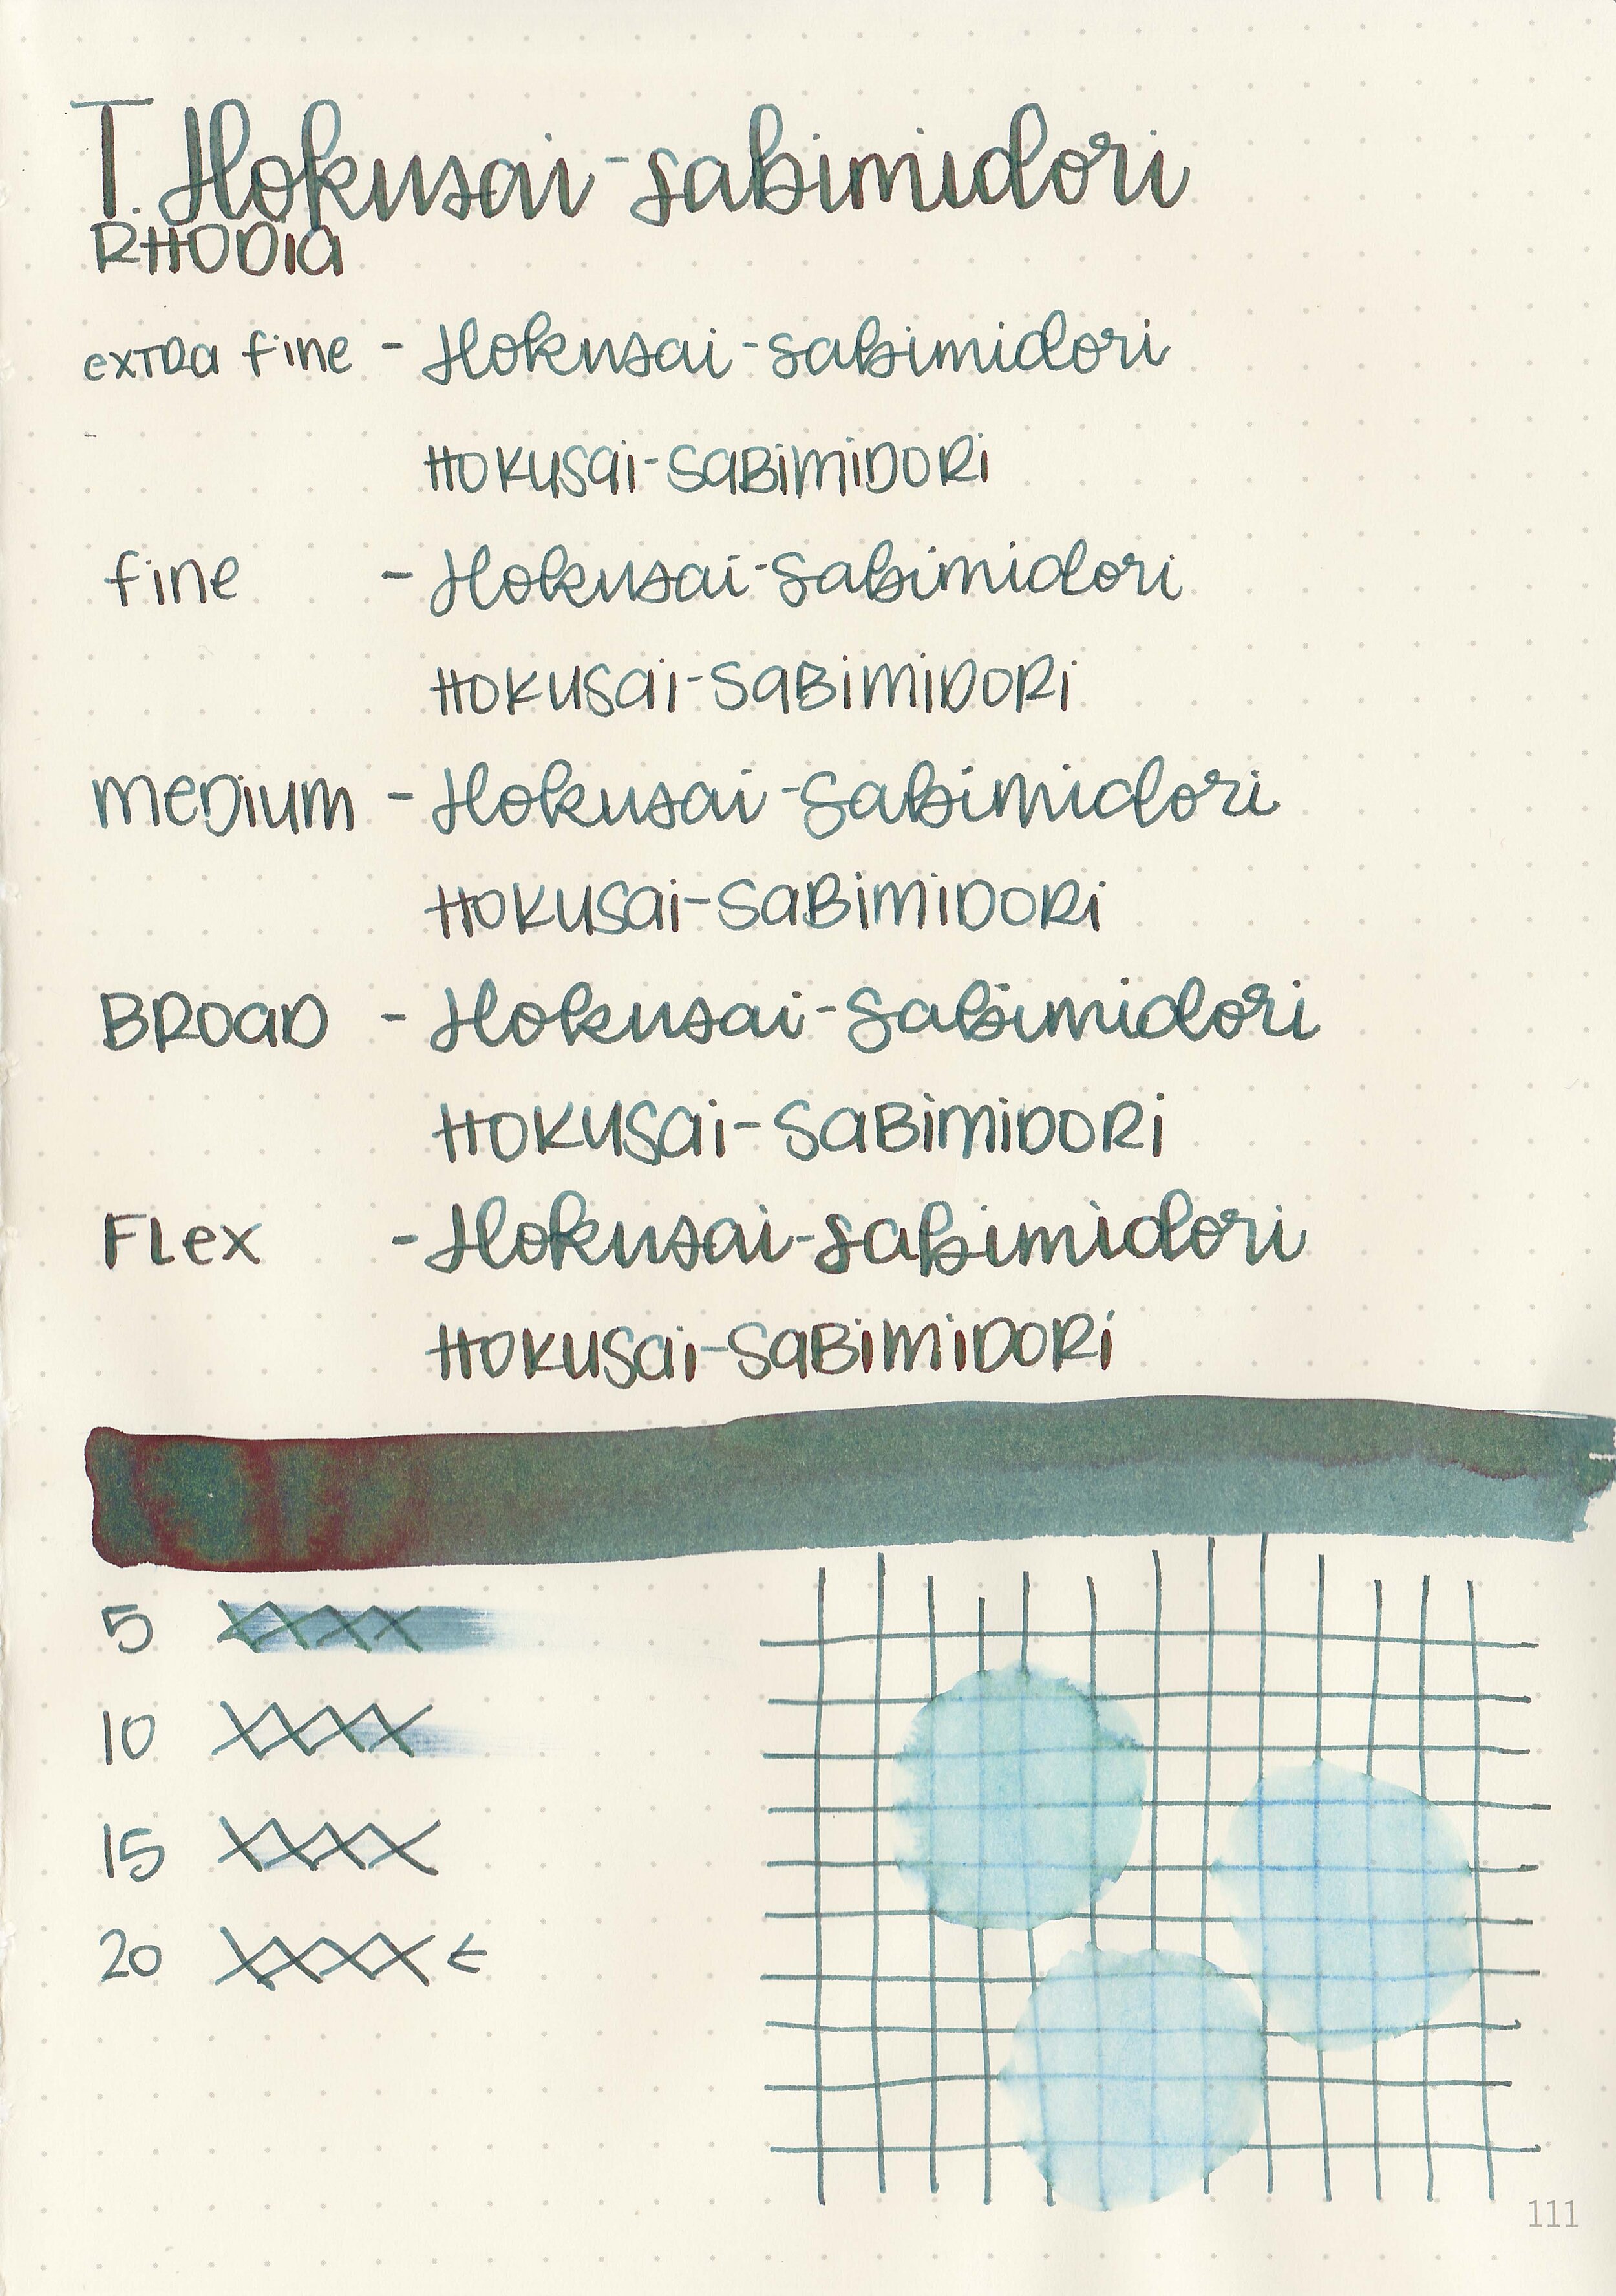 T. Hokusai-sabimidori
RHODIA
extra fine - Hokusai-sabimidori
HOKUSai-SaBiMiDORi
fine - Hokusai-sabimidori
HOKUSai-SaBiMiDORi
MeDiuM - Hokusai-sabimidori
HOKUSai-SaBiMiDORi
BROaD - Hokusai-sabimidori
HOKUSai-SaBiMiDORi
FLex - Hokusai-sabimidori
HOKUSai-SaBiMiDORi
5 XXXX
10 XXXX
15 XXXX
20 XXXX ←
111